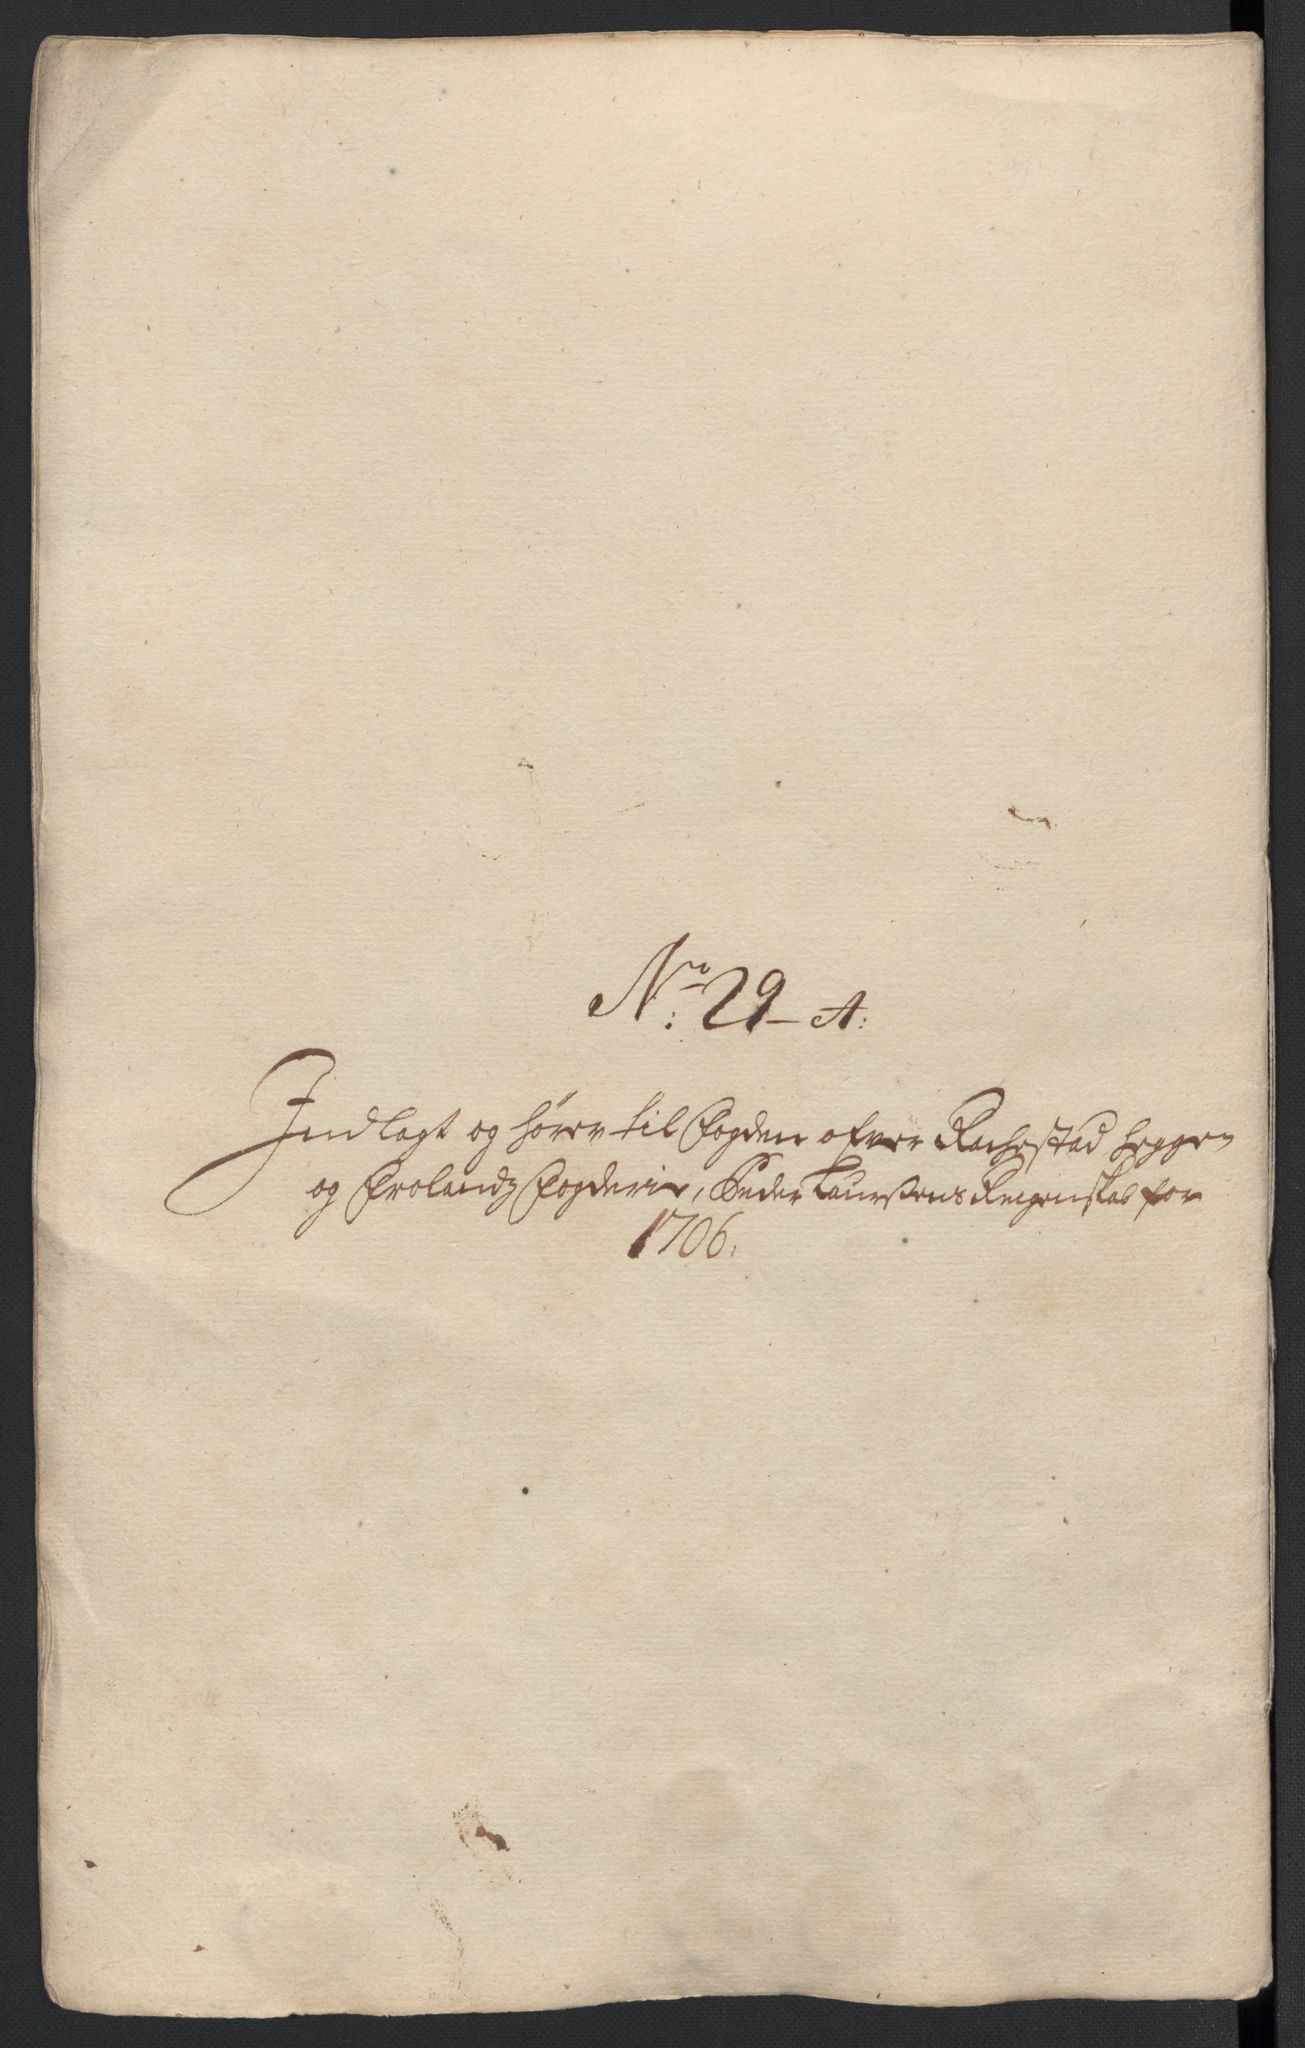 No: 29 - A:
Indlagt og hører til Fogden ofver Rachestad Heggen
og Frolandz Fogderie, Peder Laurssens Regenskab for
1706.